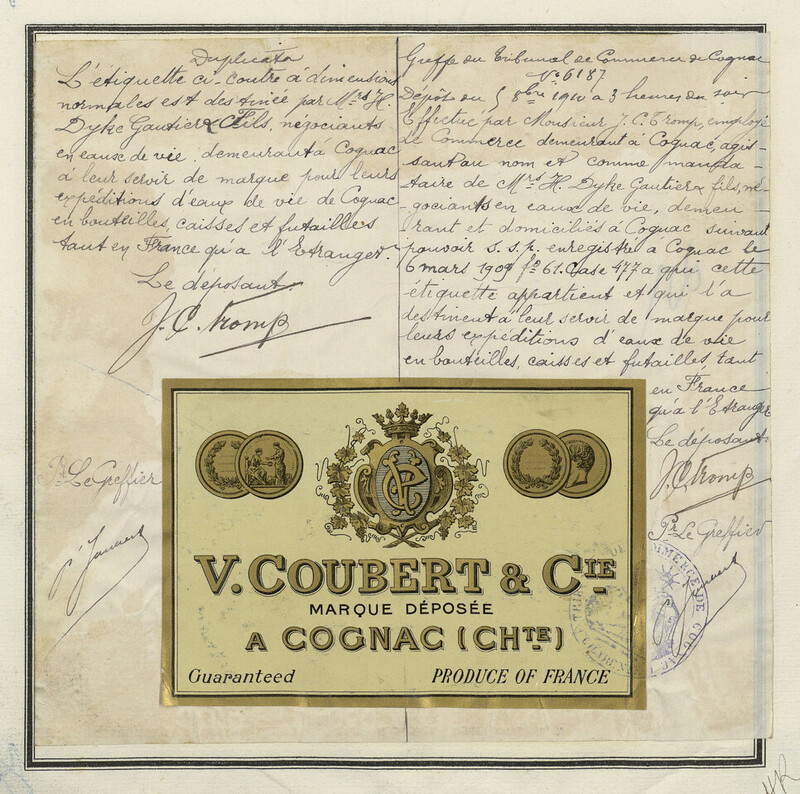 Duplicata
L'étiquette ci-contre à dimensions
normales est destinée par Mrs H.
Dyke Gautier & Fils, négociants
en eaux de vie, demeurant à Cognac
à leur servir de marque pour leurs
expéditions d'eaux de vie de Cognac
en bouteilles, caisses et futailles
tant en France qu'a l'Etranger.
Le déposant.
J. C. Tromp
Pr Le Greffier
Greffe du Tribunal de Commerce de Cognac
No 6187
Dépôt du 8bre 1910 a 3 heures du soir
Effectué par Monsieur J. C. Tromp, employé
de Commerce demeurant à Cognac, agis-
sant au nom et comme manda-
taire de Mrs H. Dyke Gautier & fils, né-
-gociants en eaux de vie, demeu-
rant et domiciliés à Cognac suivant
pouvoir s. s. p. enregistré a Cognac le
6 mars 1909 fo 61. Case 477 a qui cette
étiquette appartient et qui l'a
destinent à leur servir de marque pour
leurs expéditions d'eaux de vie
en bouteilles, caisses et futailles, tant
en France
qu'à l'Etranger
Le déposant
J. C. Tromp
Pr Le Greffier
V. COUBERT & CIE
MARQUE DÉPOSÉE
A COGNAC (CHTE)
Guaranteed
PRODUCE OF FRANCE
COMMERCE DE COGNAC